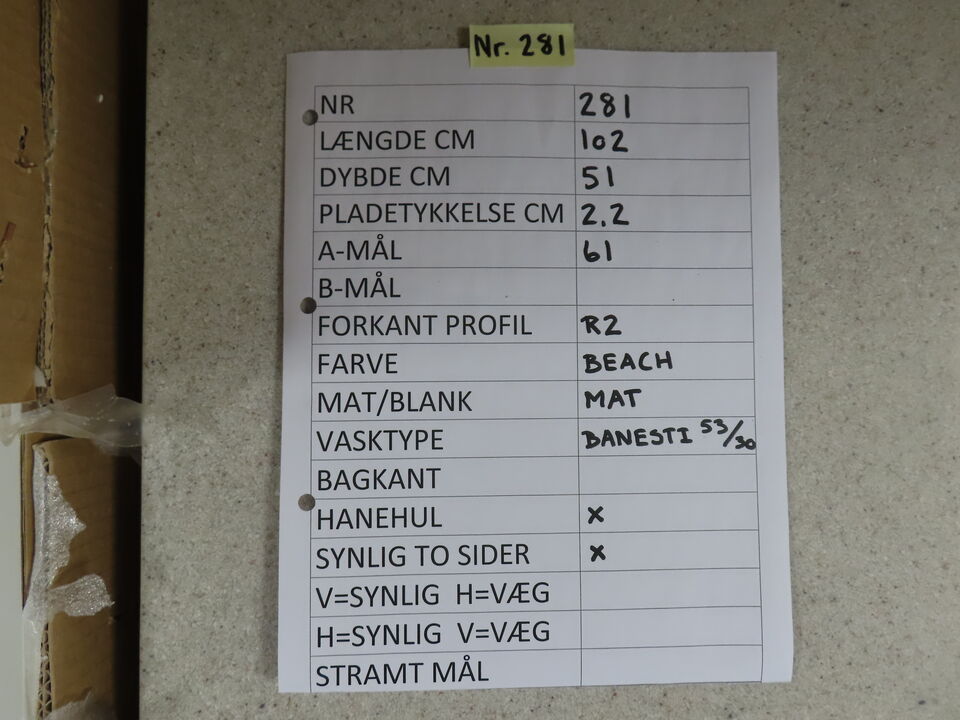 Nr. 281
NR 281
LÆNGDE CM 102
DYBDE CM 51
PLADETYKKELSE CM 2.2
A-MÅL 61
B-MÅL
FORKANT PROFIL R2
FARVE BEACH
MAT/BLANK MAT
VASKTYPE BANESTI 53/30
BAGKANT
HANEHUL X
SYNLIG TO SIDER X
V=SYNLIG H=VÆG
H=SYNLIG V=VÆG
STRAMT MÅL